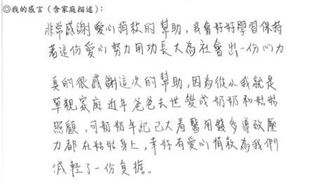 ◎我的感言(含家庭描述):
非常感謝愛心捐款的幫助,我會好好學習保持
著這份愛心努力用功長大為社會出一份心力
真的很感謝這次的幫助,因為從小我就是
單親家庭近年爸爸去世變成奶奶和姑姑
照顧,可奶奶年紀已大看醫用錢多導致壓
力都在姑姑身上,幸好有愛心捐款為我們
減輕了一份負擔。